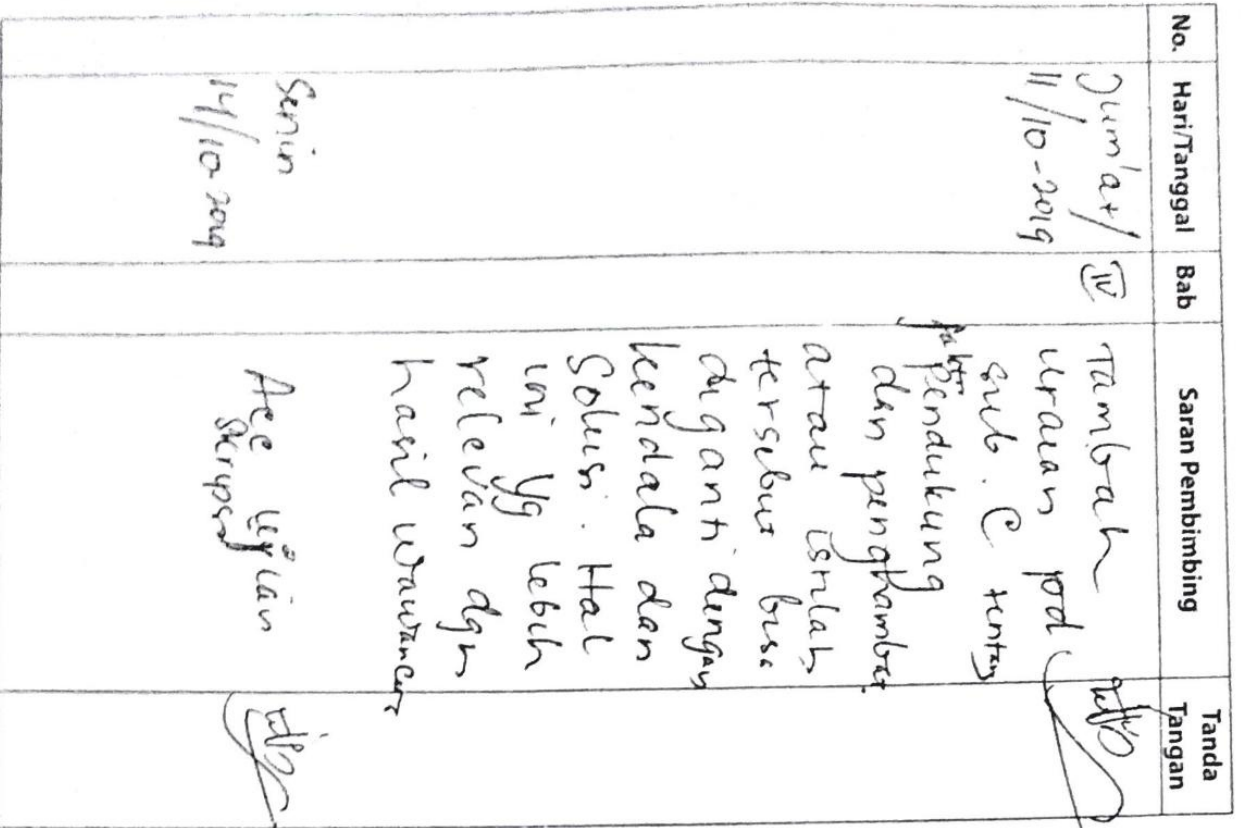 No. Hari/Tanggal Bab Saran Pembimbing Tanda Tangan
Jum'at/ IV Tambah
11/10-2019 uraian pd
sub. C tentang
faktor pendukung
dan penghambat
atau istilah
tersebut bisa
diganti dengan
kendala dan
Solusi. Hal
ini yg lebih
relevan dgn
hasil wawancara
Senin Acc ujian
14/10-2019 Skripsi